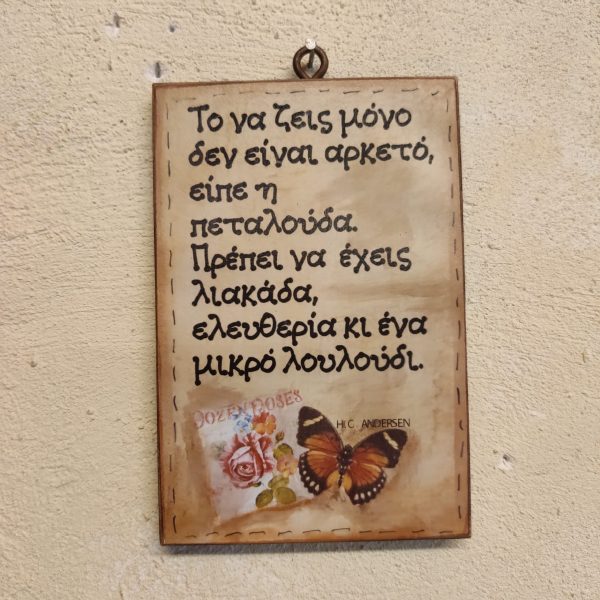 Το να ζεις μόνο
δεν είναι αρκετό,
είπε η
πεταλούδα.
Πρέπει να έχεις
λιακάδα,
ελευθερία κι ένα
μικρό λουλούδι.
DOZEN ROSES
H.C ANDERSEN